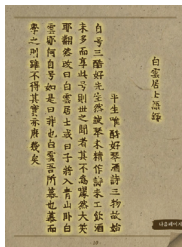 白雲居士語錄
半生唯酷好琴酒詩三物故始
自号三酷好先生然鼓琴未精作詩未工飮酒
未多而享此号則世之聞者其不爲噱然大笑
耶翻然改曰白雲居士或曰子將入青山臥白
雲耶何自号如是曰非也白雲吾所慕也慕而
學之則雖不得其實亦庶幾矣
다음페이지